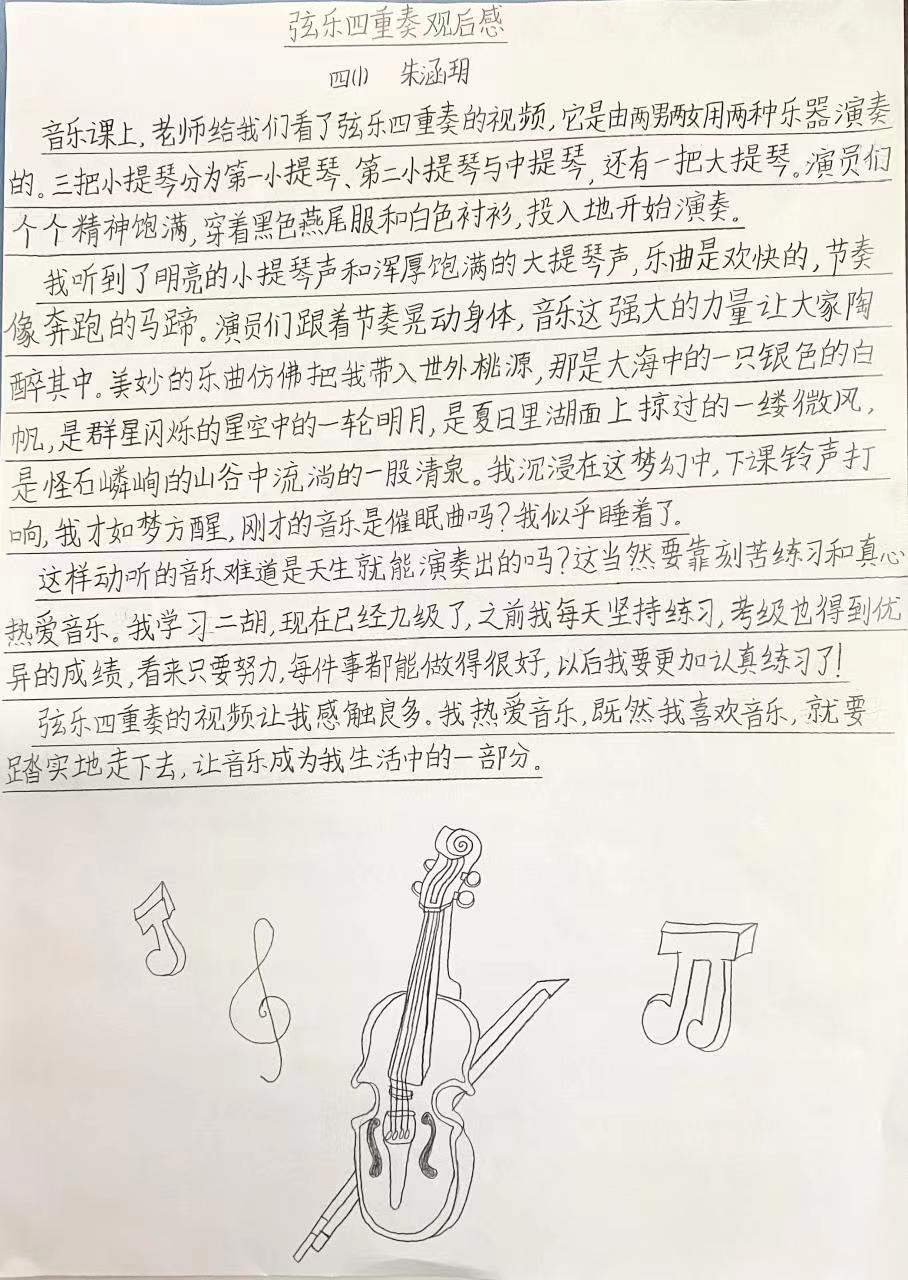 弦乐四重奏观后感
四(1) 朱涵玥
音乐课上,老师给我们看了弦乐四重奏的视频,它是由两男两女用两种乐器演奏
的。三把小提琴分为第一小提琴、第二小提琴与中提琴,还有一把大提琴。演员们
个个精神饱满,穿着黑色燕尾服和白色衬衫,投入地开始演奏。
我听到了明亮的小提琴声和浑厚饱满的大提琴声,乐曲是欢快的,节奏
像奔跑的马蹄。演员们跟着节奏晃动身体,音乐这强大的力量让大家陶
醉其中。美妙的乐曲仿佛把我带入世外桃源,那是大海中的一只银色的白
帆,是群星闪烁的星空中的一轮明月,是夏日里湖面上掠过的一缕微风,
是怪石嶙峋的山谷中流淌的一股清泉。我沉浸在这梦幻中,下课铃声打
响,我才如梦方醒,刚才的音乐是催眠曲吗?我似乎睡着了。
这样动听的音乐难道是天生就能演奏出的吗?这当然要靠刻苦练习和真心
热爱音乐。我学习二胡,现在已经九级了,之前我每天坚持练习,考级也得到优
异的成绩,看来只要努力,每件事都能做得很好,以后我要更加认真练习了!
弦乐四重奏的视频让我感触良多。我热爱音乐,既然我喜欢音乐,就要
踏实地走下去,让音乐成为我生活中的一部分。